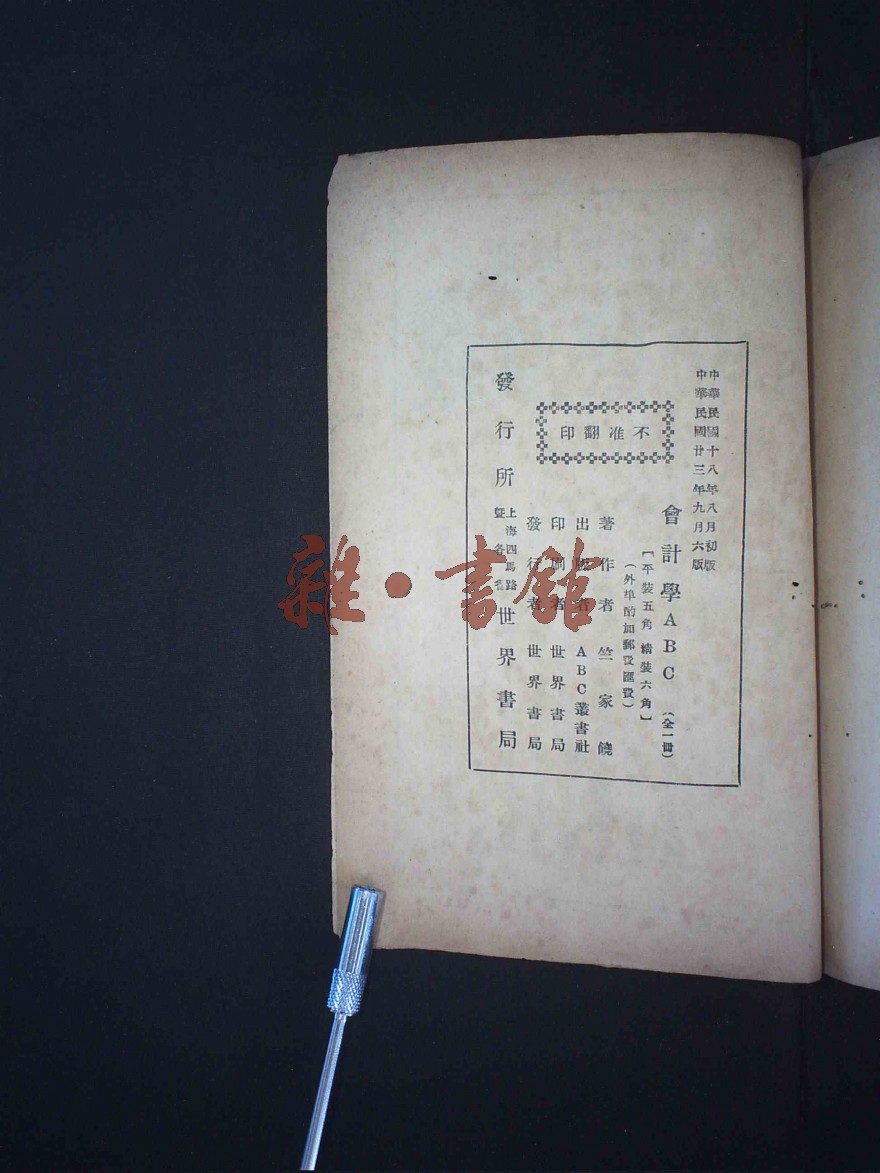 中華民國十八年八月初版
中華民國廿三年九月六版
會計學ABC（全一冊）
【平裝五角 精裝六角】
（外埠酌加郵費匯費）
不准翻印
著作者 竺家饒
出版者 ABC叢書社
印刷者 世界書局
發行者 世界書局
發行所 上海四馬路暨各省 世界書局
雜·書館